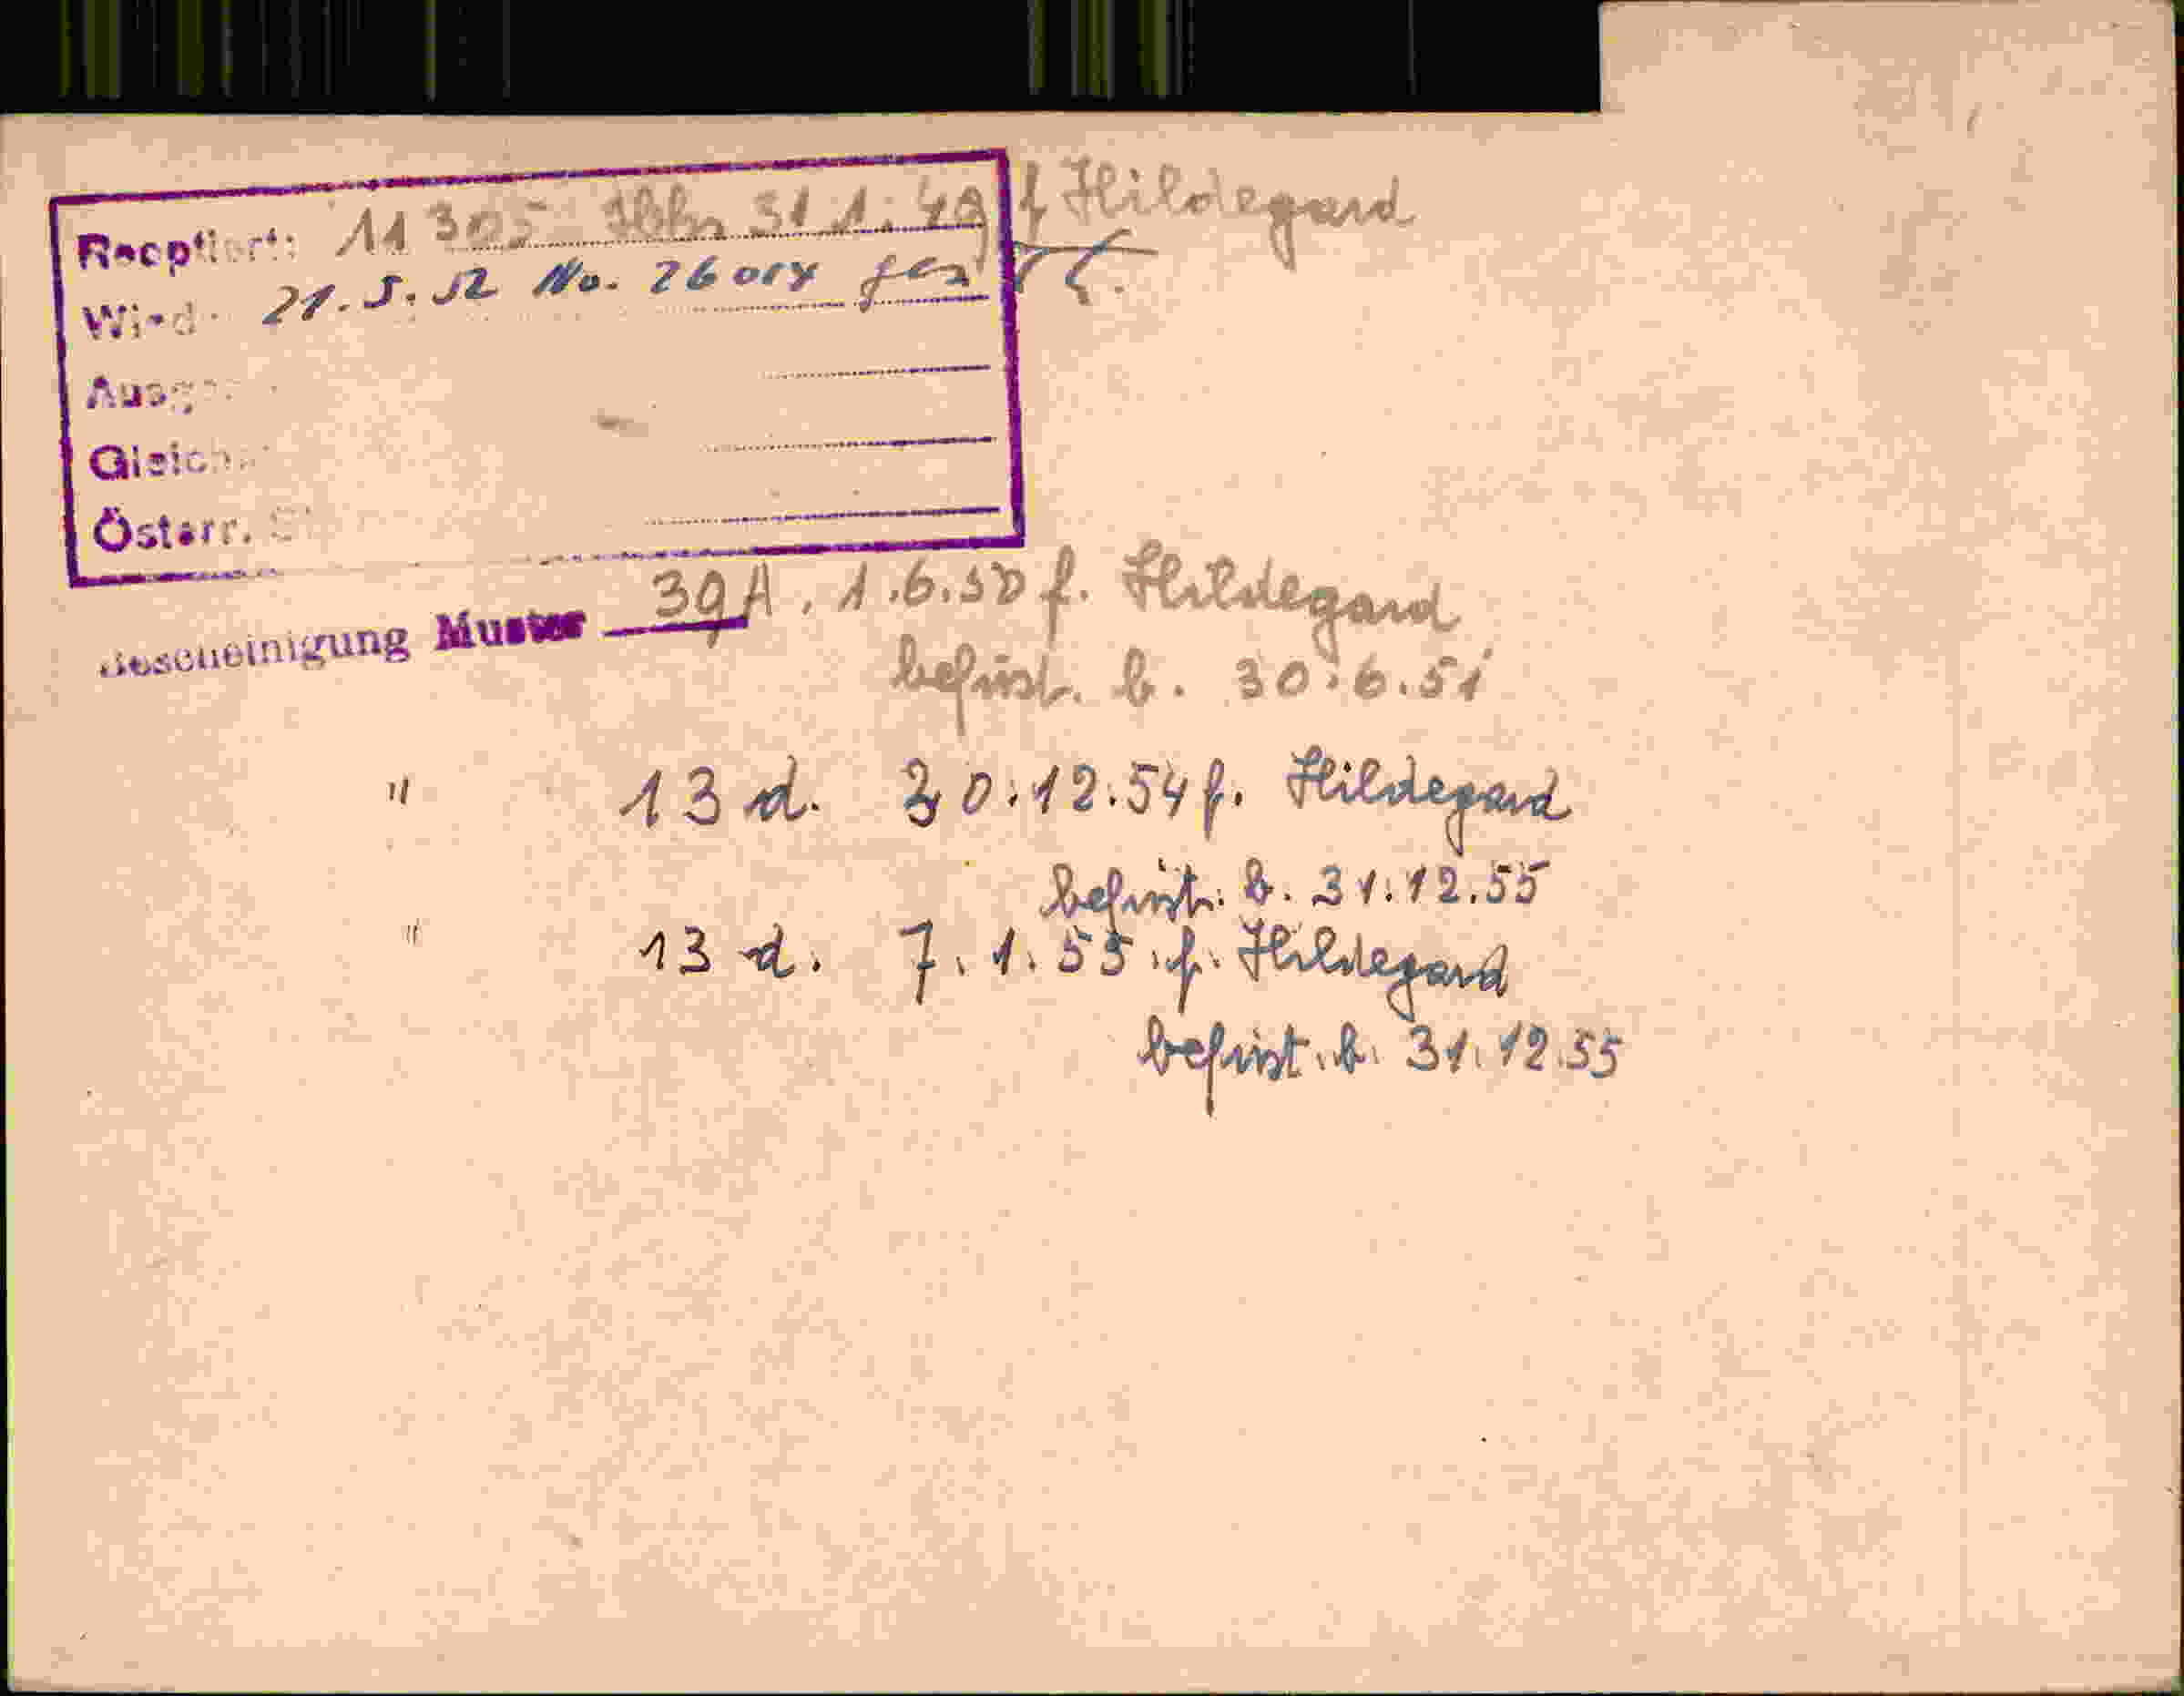 Reoptiert: 11 305 31.1.49 f Hildegard
Wied 21.5.52 No. 26
Österr.
Bescheinigung Muster 39A. 1.6.50 f. Hildegard
befrist. b. 30.6.51
" 13 d. 30.12.54 f. Hildegard
befrist. b. 31.12.55
" 13 d. 7.1.55 f. Hildegard
befrist. b. 31.12.55